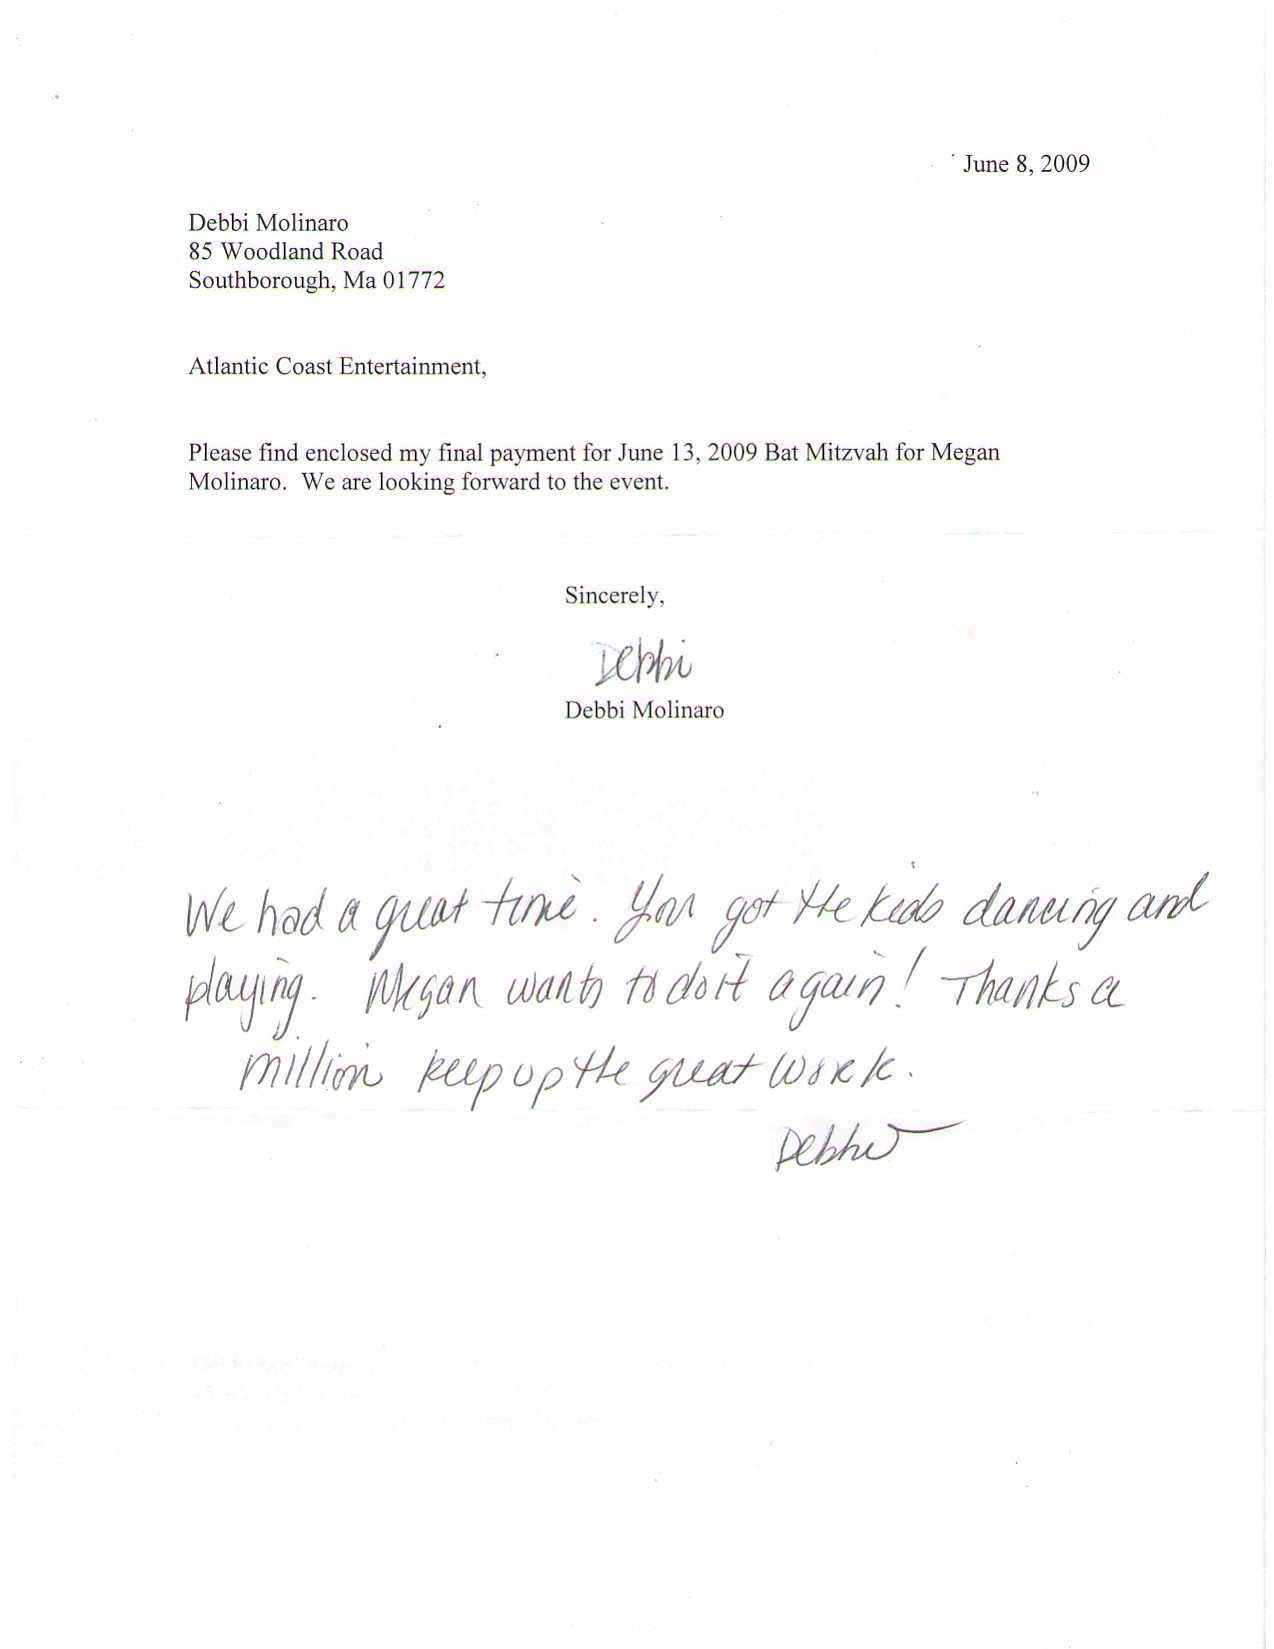 June 8, 2009
Debbi Molinaro
85 Woodland Road
Southborough, Ma 01772
Atlantic Coast Entertainment,
Please find enclosed my final payment for June 13, 2009 Bat Mitzvah for Megan
Molinaro. We are looking forward to the event.
Sincerely,
Debbi
Debbi Molinaro
We had a great time. You got the kids dancing and
playing. Megan wants to do it again! Thanks a
million keep up the great work.
Debbi